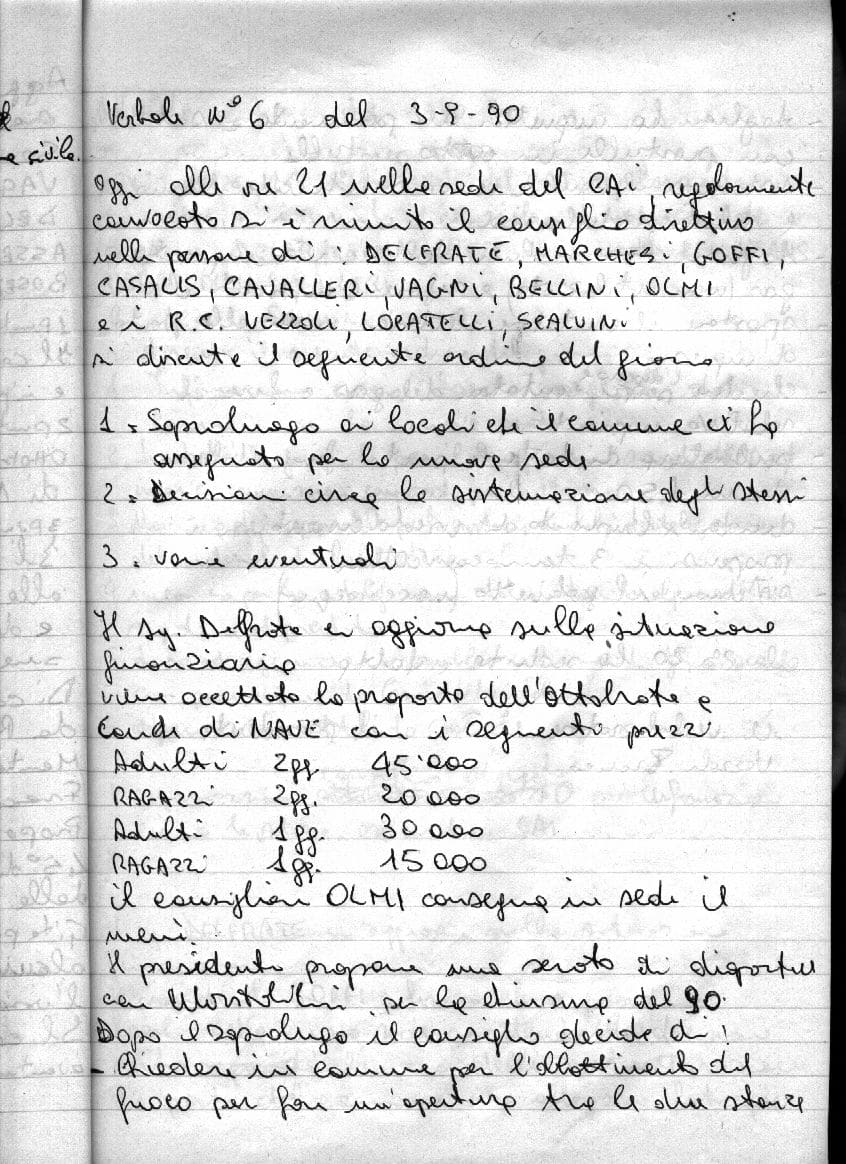 Verbale N° 6 del 3-9-90
e civile.
Oggi alle ore 21 nella sede del CAI regolarmente
convocato si è riunito il consiglio direttivo
nelle persone di: DELFRATE, MARCHESI, GOFFI,
CASALIS, CAVALLERI, VAGNI, BELLINI, OLMI
e i R.C. VEZZOLI, LOCATELLI, SCALVINI
si discute il seguente ordine del giorno
1. Sopraluogo ai locali che il comune ci ha
assegnato per la nuova sede
2. Decisioni circa la sistemazione degli stessi
3. varie eventuali
Il Sig. Delfrate ci aggiorna sulla situazione
finanziaria
viene accettata la proposta dell'Ottobrata a
Conche di NAVE con i seguenti prezzi
Adulti 2gg. 45'000
RAGAZZI 2gg. 20 000
Adulti 1gg. 30 000
RAGAZZI 1gg. 15 000
il consigliere OLMI consegna in sede il
menù.
Il presidente propone una serata di diapositive
con per la chiusura del 90.
Dopo il sopraluogo il consiglio decide di:
- Chiedere in comune per l'abbattimento del
fuoco per fare un'apertura tra le due stanze